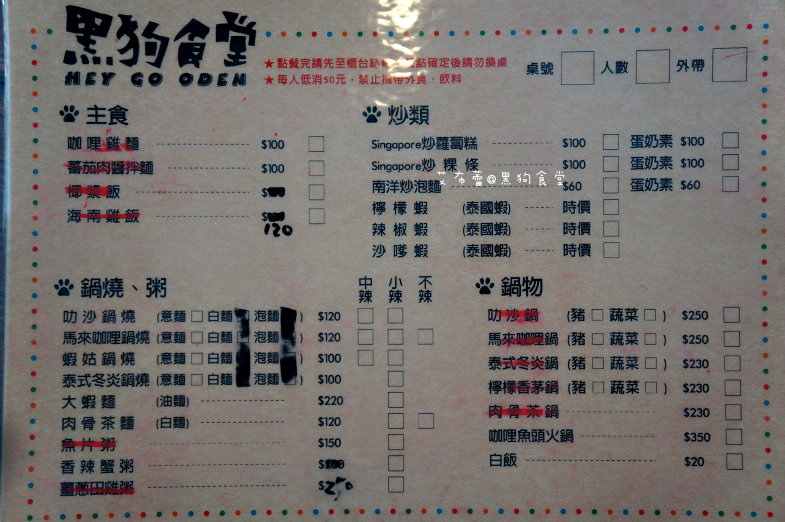 黑狗食堂
HEY GO ODEN
★點餐完請先至櫃台結 點確定後請勿換桌
★每人低消50元，禁止攜帶外食、飲料
桌號 人數 外帶
主食
咖哩雞麵 $100
蕃茄肉醬拌麵 $100
椰漿飯
海南雞飯 120
炒類
Singapore炒蘿蔔糕 $100 蛋奶素 $100
Singapore炒粿條 $100 蛋奶素 $100
南洋炒泡麵 $60 蛋奶素 $60
艾布蕾@黑狗食堂
檸檬蝦 (泰國蝦) 時價
辣椒蝦 (泰國蝦) 時價
沙嗲蝦 (泰國蝦) 時價
鍋燒、粥 中辣 小辣 不辣
叻沙鍋燒 (意麵 白麵 泡麵 ) $120
馬來咖哩鍋燒 (意麵 白麵 泡麵 ) $120
蝦姑鍋燒 (意麵 白麵 泡麵 ) $100
泰式冬炎鍋燒 (意麵 白麵 泡麵 ) $100
大蝦麵 (油麵) $220
肉骨茶麵 (白麵) $120
魚片粥 $150
香辣蟹粥
薑蔥田雞粥 $250
鍋物
叻沙鍋 (豬 蔬菜 ) $250
馬來咖哩鍋 (豬 蔬菜 ) $250
泰式冬炎鍋 (豬 蔬菜 ) $230
檸檬香茅鍋 (豬 蔬菜 ) $230
肉骨茶鍋 $230
咖哩魚頭火鍋 $350
白飯 $20